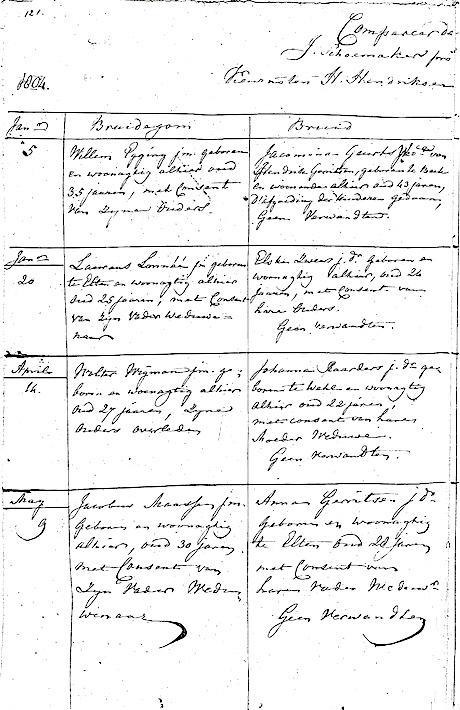 121.
Compareerde
J. Schoemaker pro
H. Hendriksen
1804.
Janu Bruidegom Bruid
5
Willem Epping jm. geboren
en woonagtig alhier oud
35 jaaren, met Consent
van Zijn Vaders.
Jacomina Geurts van
Hendrik Gerritsen, geboren te Beek
en woonende alhier oud 43 jaaren,
der kinderen gedaan,
Geen Verwandten.
Janu
20
Laurens jm geboren
te Elten en woonagtig alhier
oud 25 jaaren, met Consent
van Zijn Vader Weduwe-
naar
Elsken j.d. geboren en
woonagtig alhier, oud 24
jaaren, met Consent van
hare Ouders.
Geen Verwandten.
April
14.
Wolter Wijman jm. ge-
boren en woonagtig alhier
oud 27 jaaren, Zijne
Ouders overleden
Johanna Raarders j.d. ge-
boren te Wehl en woonagtig
alhier oud 22 jaren,
met consent van hare
Moeder Weduwe.
Geen Verwandten.
May
9
Jacobus Maassen jm.
geboren en woonagtig
alhier, oud 30 jaren
met Consent van
Zijn Vader Wedu-
wenaar
Anna Gerritsen j.d.
geboren en woonagtig
te Elten oud 28 jaren
met Consent van
haren Vader Weduwr.
Geen Verwandten